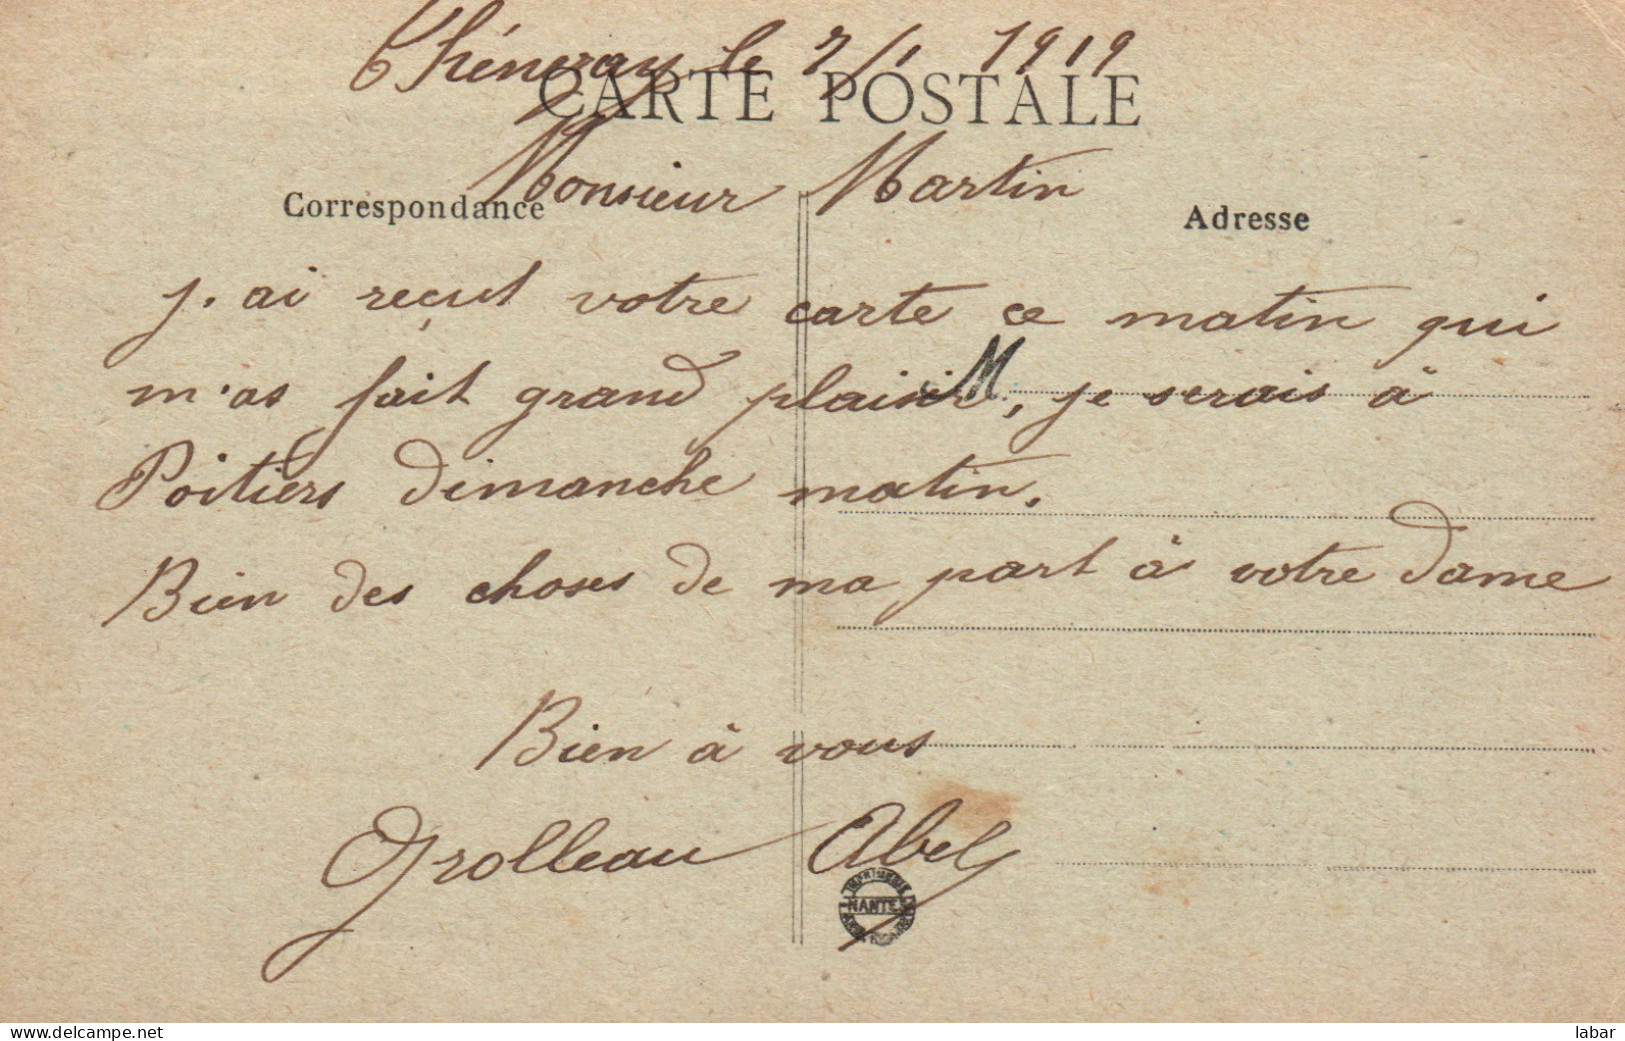 Thénezay le 7/1 1919
CARTE POSTALE
Monsieur Martin
Correspondance
Adresse
j'ai reçut votre carte ce matin qui
m'as fait grand plaisir, je serais à
M
Poitiers dimanche matin.
Bien des choses de ma part à votre dame
Bien à vous
Grolleau Abel
IMPRIMERIE
NANTES
www.delcampe.net
labar